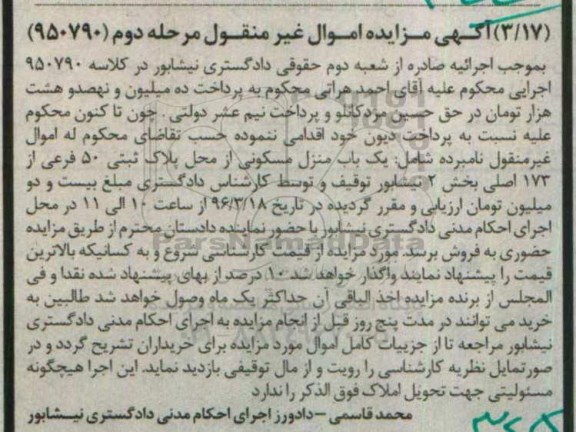 (۳/۱۷) آگهی مزایده اموال غیر منقول مرحله دوم (۹۵۰۷۹۰)
بموجب اجرائیه صادره از شعبه دوم حقوقی دادگستری نیشابور در کلاسه ۹۵۰۷۹۰
اجرایی محکوم علیه آقای احمد هراتی محکوم به پرداخت ده میلیون و نهصدو هشت
هزار تومان در حق حسین مزدکانلو و پرداخت نیم عشر دولتی . چون تا کنون محکوم
علیه نسبت به پرداخت دیون خود اقدامی ننموده حسب تقاضای محکوم له اموال
غیرمنقول نامبرده شامل: یک باب منزل مسکونی از محل پلاک ثبتی ۵۰ فرعی از
۱۷۳ اصلی بخش ۲ نیشابور توقیف و توسط کارشناس دادگستری مبلغ بیست و دو
میلیون تومان ارزیابی و مقرر گردیده در تاریخ ۹۶/۳/۱۸ از ساعت ۱۰ الی ۱۱ در محل
اجرای احکام مدنی دادگستری نیشابور با حضور نماینده دادستان محترم از طریق مزایده
حضوری به فروش برسد. مورد مزایده از قیمت کارشناسی شروع و به کسانیکه بالاترین
قیمت را پیشنهاد نمایند واگذار خواهد شد ۱۰ درصد از بهای پیشنهاد شده نقدا و فی
المجلس از برنده مزایده اخذ الباقی آن حداکثر یک ماه وصول خواهد شد طالبین به
خرید می توانند در مدت پنج روز قبل از انجام مزایده به اجرای احکام مدنی دادگستری
نیشابور مراجعه تا از جزییات کامل اموال مورد مزایده برای خریداران تشریح گردد و در
صورتمایل نظریه کارشناسی را رویت و از مال توقیفی بازدید نماید. این اجرا هیچگونه
مسئولیتی جهت تحویل املاک فوق الذکر را ندارد
محمد قاسمی – دادورز اجرای احکام مدنی دادگستری نیشابور
ParsNamadData